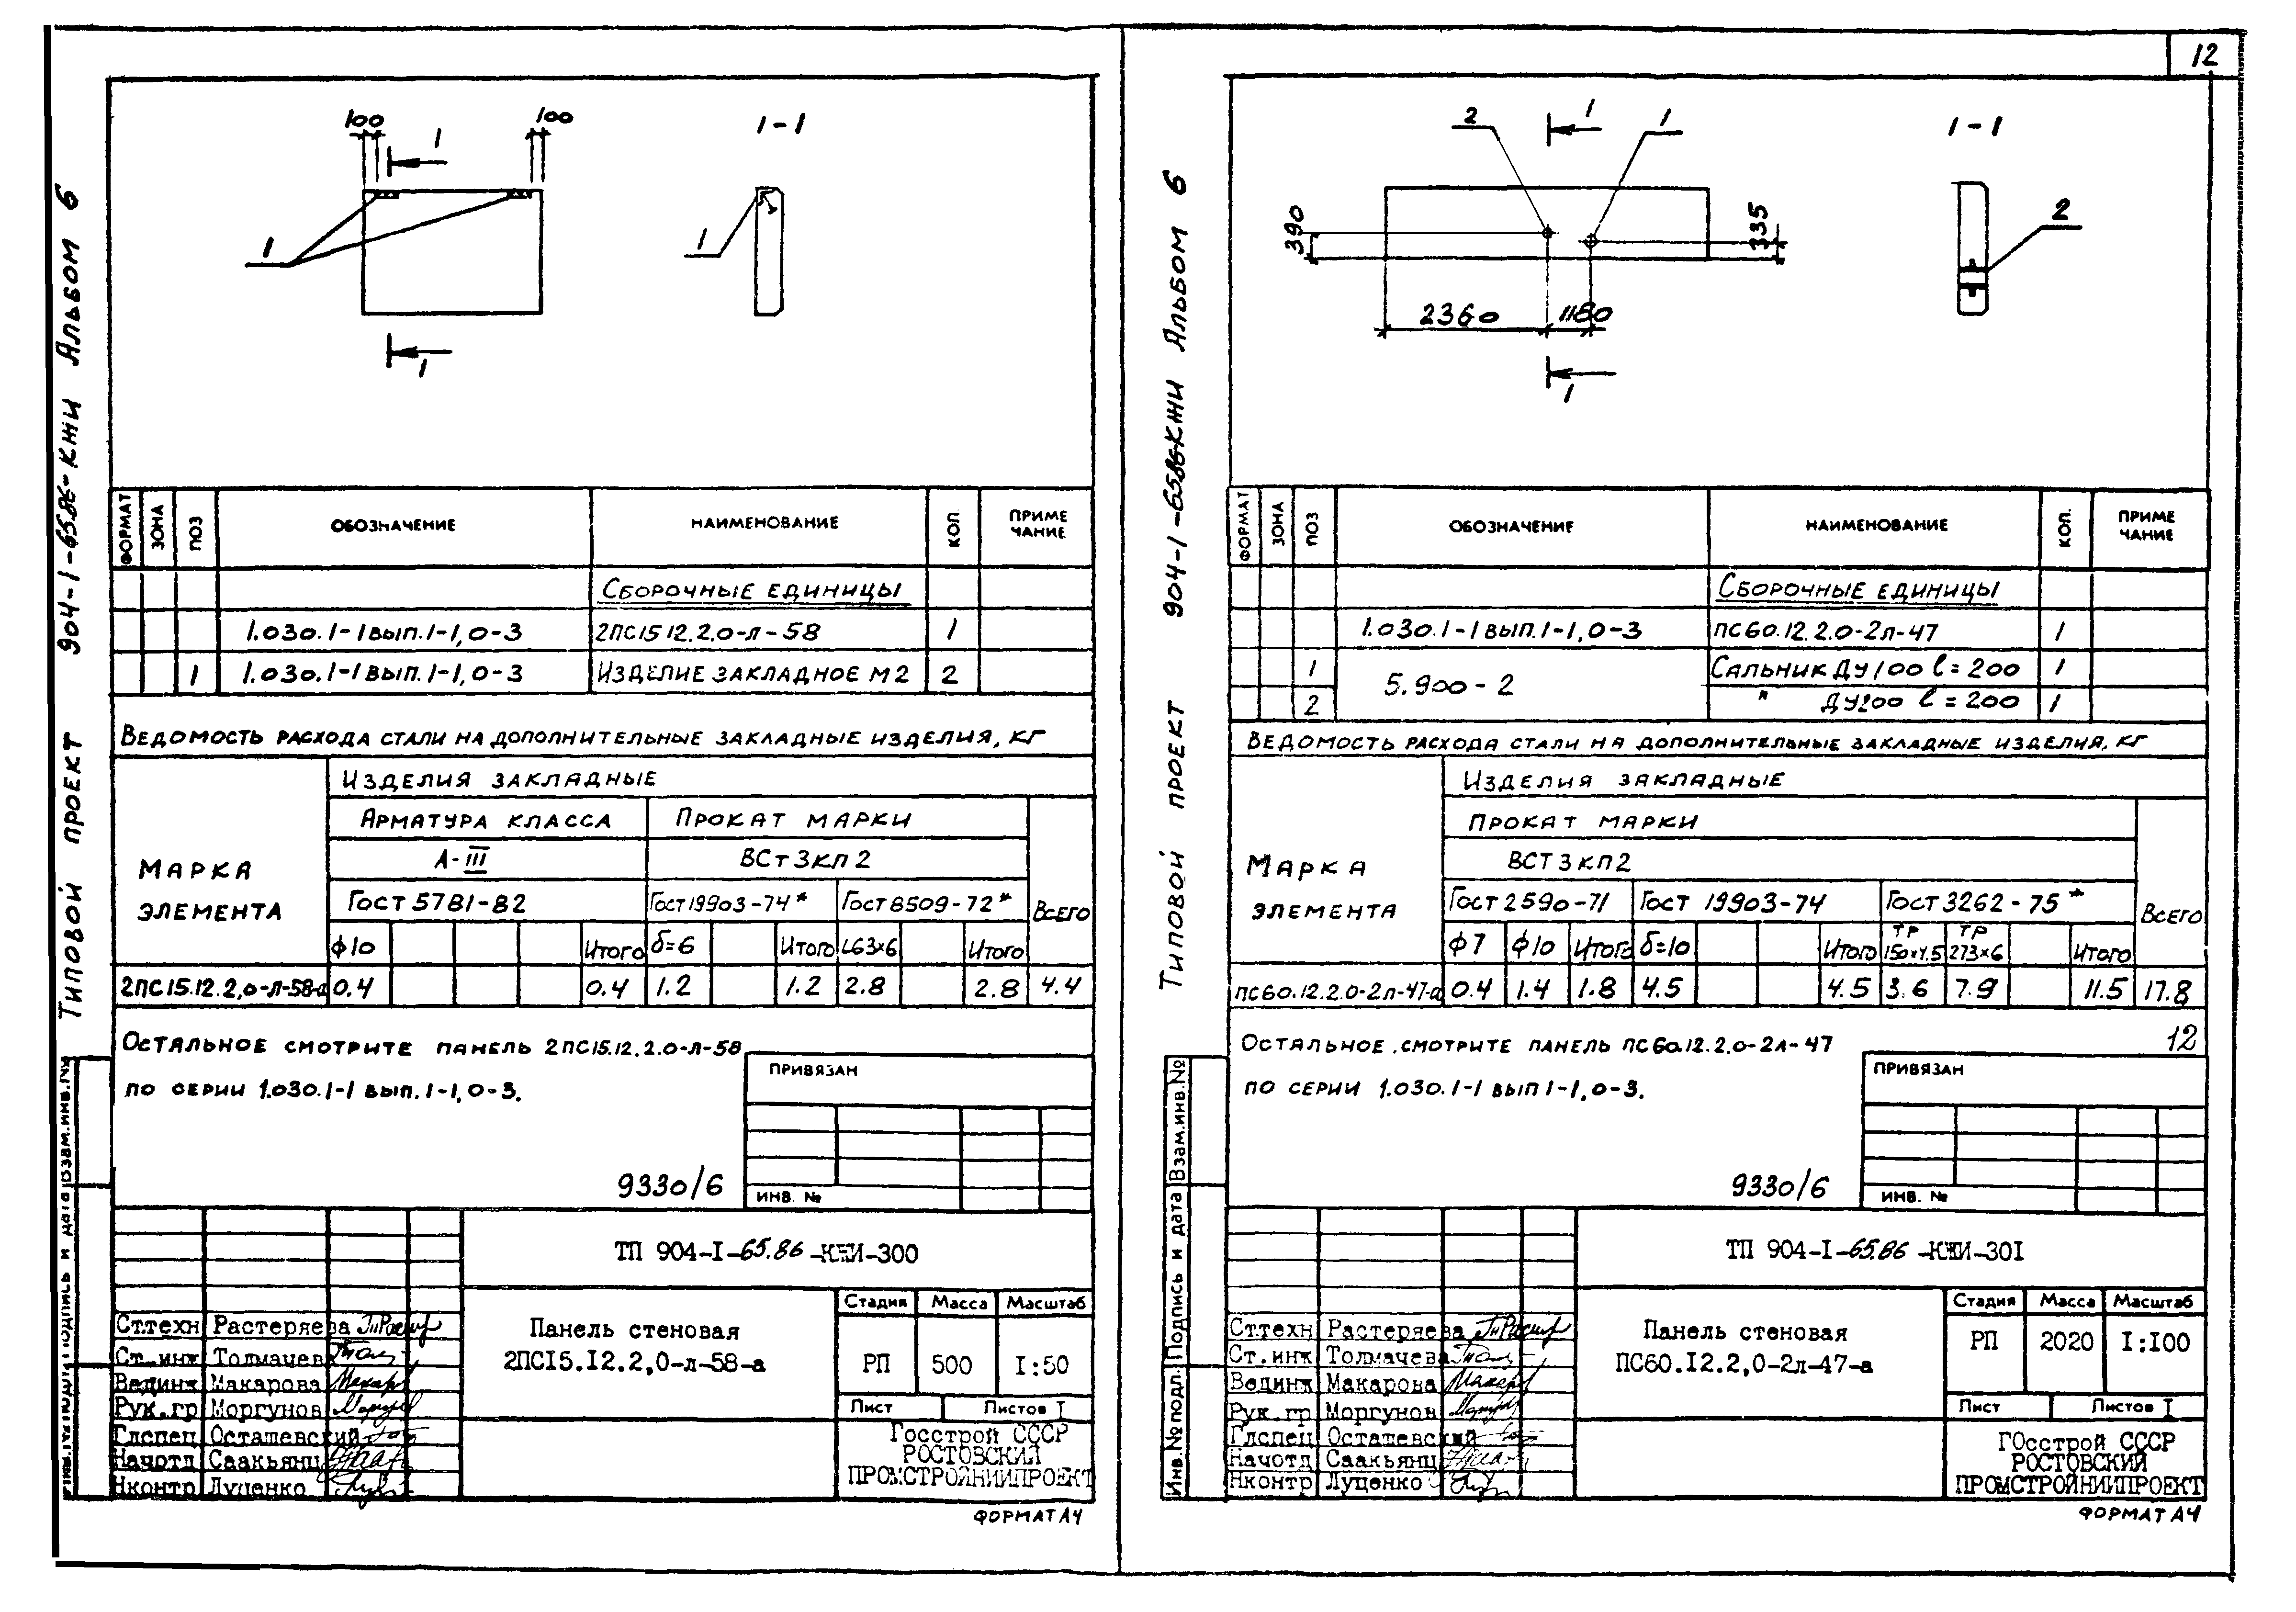 12
Типовой проект 904-1-65.86-КЖИ Альбом 6
100 100
1 1-1
1 1
1
ФОРМАТ ЗОНА ПОЗ ОБОЗНАЧЕНИЕ НАИМЕНОВАНИЕ КОЛ. ПРИМЕ
ЧАНИЕ
Сборочные единицы
1.030.1-1 вып.1-1,0-3 2ПС15 12.2.0-л-58 1
1 1.030.1-1 вып.1-1,0-3 Изделие закладное М2 2
Ведомость расхода стали на дополнительные закладные изделия, кг
Марка
элемента
Изделия закладные
Арматура класса Прокат марки
А-III ВСт3кп2
Гост 5781-82 Гост19903-74* Гост8509-72* Всего
ф10 Итого б=6 Итого L63x6 Итого
2ПС15.12.2,0-л-58-а 0.4 0.4 1.2 1.2 2.8 2.8 4.4
Остальное смотрите панель 2ПС15.12.2.0-л-58
по серии 1.030.1-1 вып.1-1,0-3.
ПРИВЯЗАН
9330/6
ИНВ. №
Взам.инв.№
Подпись и дата
Инв.№ подл.
ТП 904-I-65.86-КЖИ-300
Ст.техн Растеряева
Ст.инж Толмачева
Вединж Макарова
Рук.гр Моргунов
Глспец Осташевский
Начотд Саакьянц
Нконтр Луценко
Панель стеновая
2ПС15.12.2,0-л-58-а
Стадия Масса Масштаб
РП 500 I:50
Лист Листов I
Госстрой СССР
РОСТОВСКИЙ
ПРОМСТРОЙНИИПРОЕКТ
ФОРМАТ А4
Типовой проект 904-1-65.86-КЖИ Альбом 6
2 1 1 1-1
390 335
2
2360 1180
1
ФОРМАТ ЗОНА ПОЗ ОБОЗНАЧЕНИЕ НАИМЕНОВАНИЕ КОЛ. ПРИМЕ
ЧАНИЕ
Сборочные единицы
1.030.1-1 вып.1-1,0-3 ПС60.12.2.0-2л-47 1
1 5.900-2 Сальник Ду100 l=200 1
2 " Ду200 l=200 1
Ведомость расхода стали на дополнительные закладные изделия, кг
Марка
элемента
Изделия закладные
Прокат марки
ВСТ3кп2
Гост 2590-71 Гост 19903-74 Гост 3262-75* Всего
ф7 ф10 Итого б=10 Итого ТР 150x4.5 ТР 273x6 Итого
ПС60.12.2.0-2л-47-а 0.4 1.4 1.8 4.5 4.5 3.6 7.9 11.5 17.8
12
Остальное смотрите панель ПС60.12.2,0-2л-47
по серии 1.030.1-1 вып 1-1,0-3.
ПРИВЯЗАН
9330/6
ИНВ. №
Взам.инв.№
Подпись и дата
Инв.№ подл.
ТП 904-I-65.86-КЖИ-30I
Ст.техн Растеряева
Ст.инж Толмачева
Вединж Макарова
Рук.гр Моргунов
Глспец Осташевский
Начотд Саакьянц
Нконтр Луценко
Панель стеновая
ПС60.12.2,0-2л-47-а
Стадия Масса Масштаб
РП 2020 I:I00
Лист Листов I
ГОсстрой СССР
РОСТОВСКИЙ
ПРОМСТРОЙНИИПРОЕКТ
ФОРМАТ А4